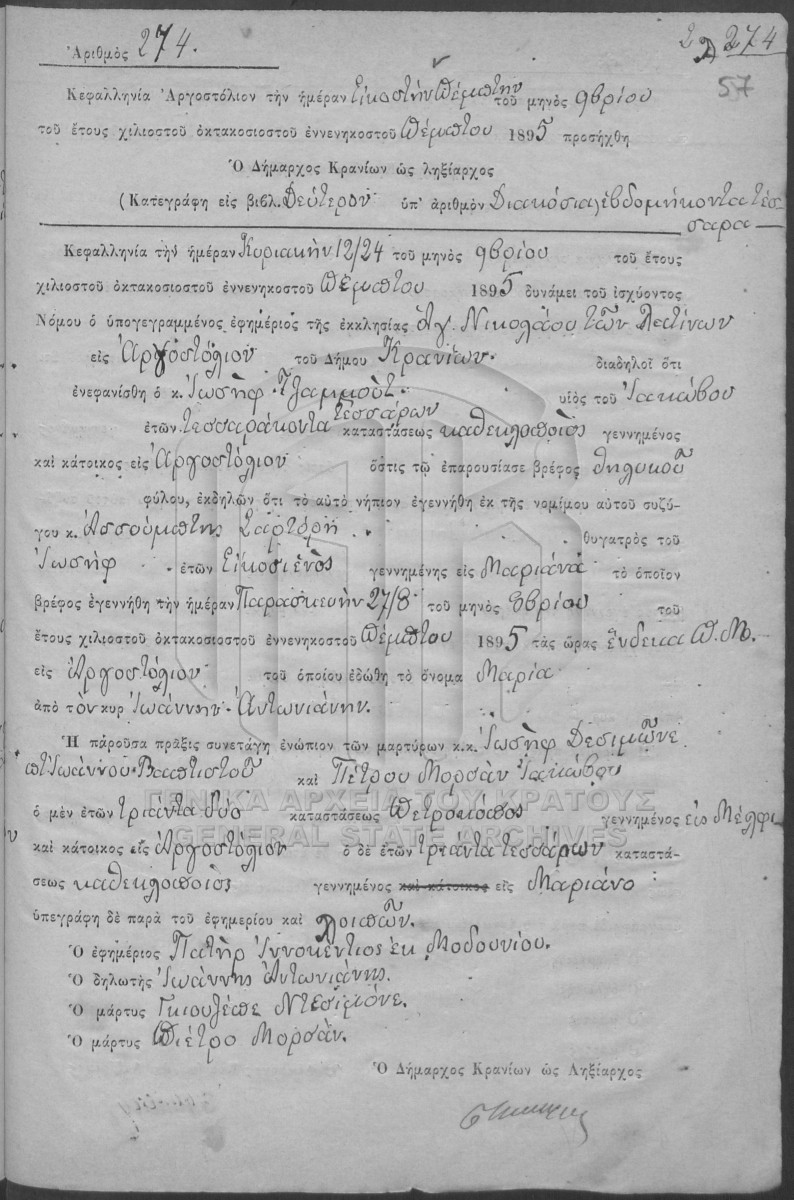 Ἀριθμὸς 274.
274
57
Κεφαλληνία Ἀργοστόλιον τὴν ἡμέραν Εἰκοστὴν Πέμπτην τοῦ μηνὸς 9βρίου
τοῦ ἔτους χιλιοστοῦ ὀκτακοσιοστοῦ ἐννενηκοστοῦ Πέμπτου 1895 προσήχθη
Ὁ Δήμαρχος Κρανίων ὡς ληξίαρχος
(Κατεγράφη εἰς βιβλ. Δεύτερον ὑπ' ἀριθμὸν Διακόσια ἑβδομήκοντα τέσ-
σαρα
Κεφαλληνία τὴν ἡμέραν Κυριακὴν 12/24 τοῦ μηνὸς 9βρίου τοῦ ἔτους
χιλιοστοῦ ὀκτακοσιοστοῦ ἐννενηκοστοῦ Πέμπτου 1895 δυνάμει τοῦ ἰσχύοντος
Νόμου ὁ ὑπογεγραμμένος ἐφημέριος τῆς ἐκκλησίας Ἁγ. Νικολάου τῶν Λατίνων
εἰς Ἀργοστόλιον τοῦ Δήμου Κρανίων. διαδηλοῖ ὅτι
ἐνεφανίσθη ὁ κ. Ἰωσὴφ Τζαμμοὺτ υἱὸς τοῦ Ἰακώβου
ἐτῶν τεσσαράκοντα τεσσάρων καταστάσεως καθεκλοποιὸς γεννημένος
καὶ κάτοικος εἰς Ἀργοστόλιον ὅστις τῷ ἐπαρουσίασε βρέφος θηλυκοῦ
φύλου, ἐκδηλῶν ὅτι τὸ αὐτὸ νήπιον ἐγεννήθη ἐκ τῆς νομίμου αὐτοῦ συζύ-
γου κ. Ἀσσούμπτης Σαρτόρη θυγατρὸς τοῦ
Ἰωσὴφ ἐτῶν Εἰκοσιἑνὸς γεννημένης εἰς Μαριάνα τὸ ὁποῖον
βρέφος ἐγεννήθη τὴν ἡμέραν Παρασκευὴν 27/8 τοῦ μηνὸς 8βρίου τοῦ
ἔτους χιλιοστοῦ ὀκτακοσιοστοῦ ἐννενηκοστοῦ Πέμπτου 1895 τὰς ὥρας ἕνδεκα Π.Μ.
εἰς Ἀργοστόλιον τοῦ ὁποίου ἐδώθη τὸ ὄνομα Μαρία
ἀπὸ τὸν κυρ Ἰωάννην Ἀντωνιάννην.
Ἡ πάρουσα πρᾶξις συνετάγη ἐνώπιον τῶν μαρτύρων κ. κ. Ἰωσὴφ Δεσιμῶνε
Ἰωάννου Βαπτιστοῦ καὶ Πέτρου Μορσὰν Ἰακώβου
ΓΕΝΙΚΑ ΑΡΧΕΙΑ ΤΟΥ ΚΡΑΤΟΥΣ
ὁ μὲν ἐτῶν τριάντα δύο καταστάσεως Πετροκόπος γεννημένος εἰς Μέλφι
GENERAL STATE ARCHIVES
καὶ κάτοικος εἰς Ἀργοστόλιον ὁ δὲ ἐτῶν τριάντα τεσσάρων καταστά-
σεως καθεκλοποιὸς γεννημένος καὶ κάτοικος εἰς Μαριάνο
ὑπεγράφη δὲ παρὰ τοῦ ἐφημερίου καὶ λοιπῶν.
Ὁ ἐφημέριος Πατὴρ Ἰννοκέντιος ἐκ Μοδουνίου.
Ὁ δηλωτὴς Ἰωάννης Ἀντωνιάννης.
Ὁ μάρτυς Γκιουζέπε Ντεσιμόνε.
Ὁ μάρτυς Πιέτρο Μορσὰν.
Ὁ Δήμαρχος Κρανίων ὡς Ληξίαρχος